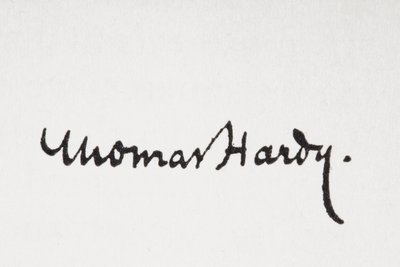 Thomas Hardy.